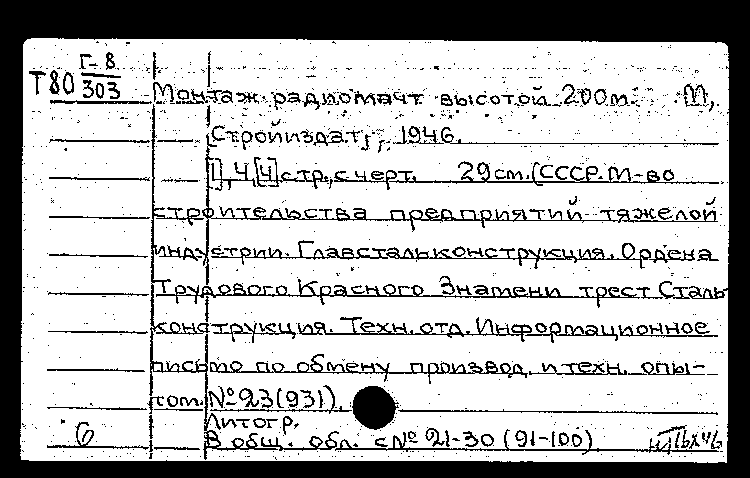 Г-8
Т80 303
Монтаж радиомачт высотой 200м. М,
Стройиздат, 1946.
[1], 4, [4] стр., с черт. 29 см. (СССР. М-во
строительства предприятий тяжелой
индустрии. Главстальконструкция. Ордена
Трудового Красного Знамени трест Сталь
конструкция. Техн. отд. Информационное
письмо по обмену производ. и техн. опы-
том. № 23 (931).
Литогр.
6 В общ. обл. с № 21-30 (91-100)